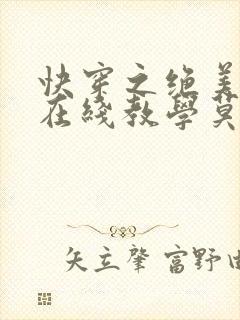 快穿之绝美
在线教學莫
矢立肇 富野由